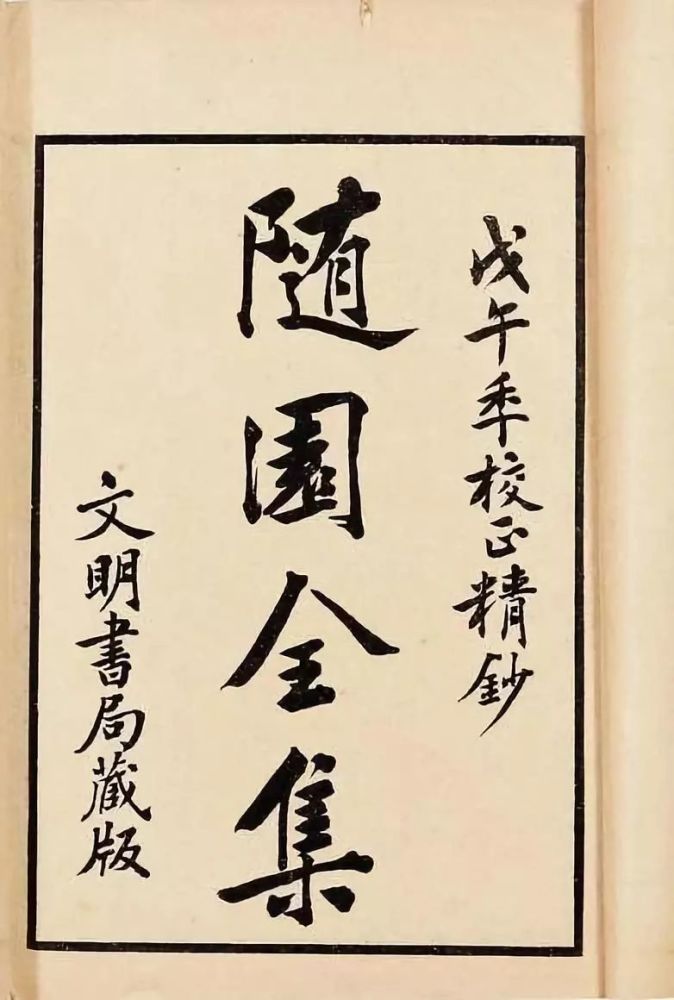 戊午年校正精鈔
随園全集
文明書局藏版